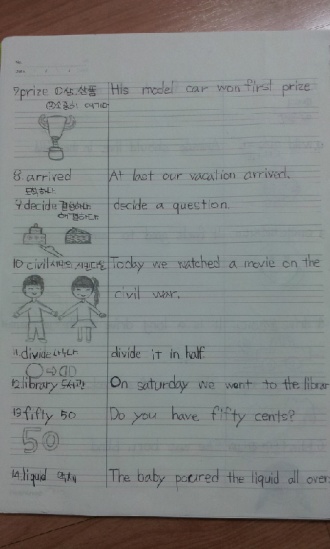 7 prize ①상, 상품 His model car won first prize
②소중히 여기다
8. arrived At last our vacation arrived.
도착하다
9. decide 결정하다 decide a question.
해결하다
10. civil 시민의 Today we watched a movie on the
civil war.
11 divide 나누다 divide it in half.
12. library 도서관 On saturday we went to the librar
13. fifty 50 Do you have fifty cents?
50
14. liquid 액체 The baby poured the liquid all over